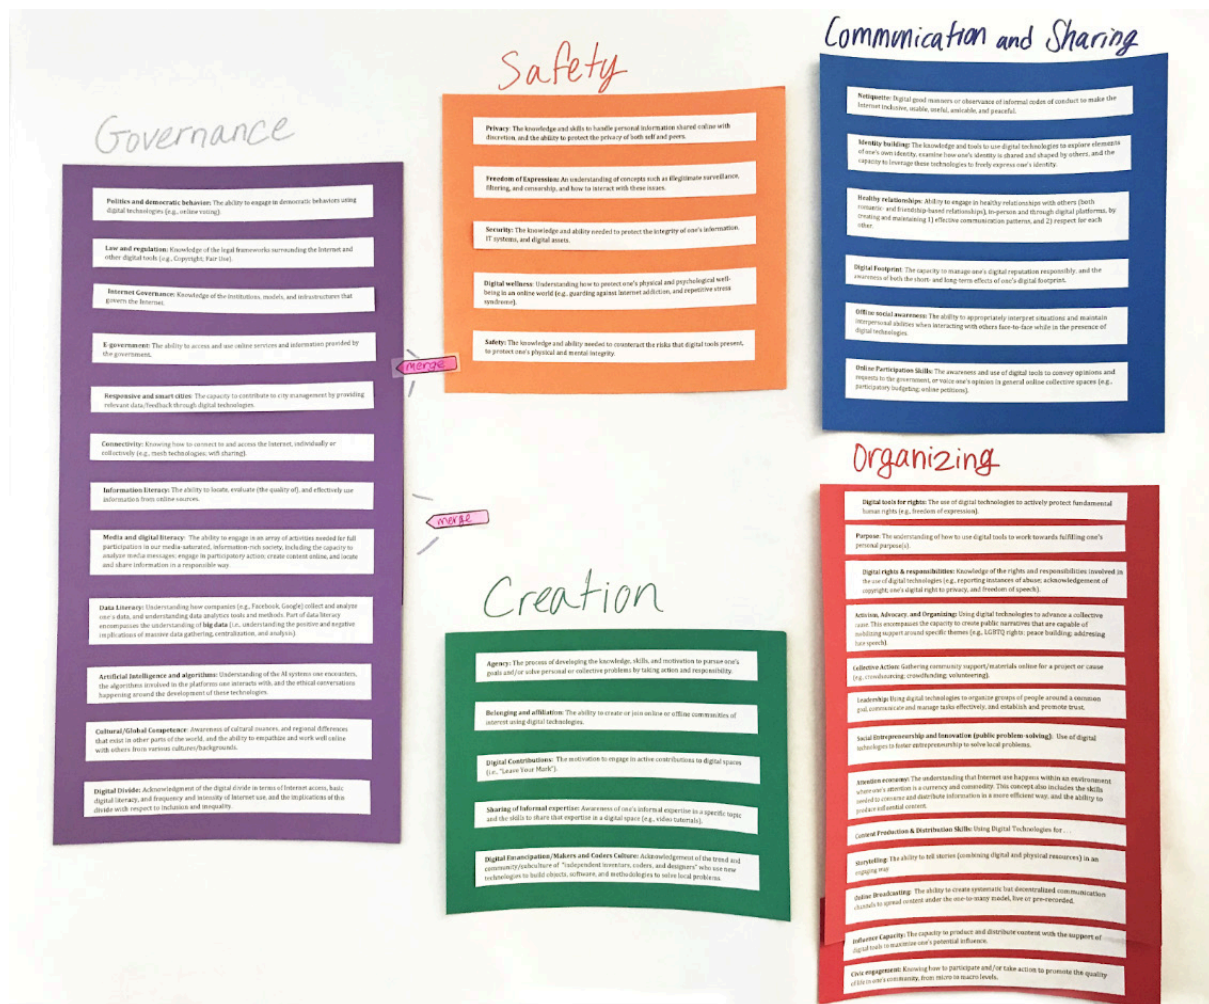 Governance
Politics and democratic behavior: The ability to engage in democratic behaviors using
digital technologies (e.g., online voting).
Law and regulation: Knowledge of the legal frameworks surrounding the Internet and
other digital tools (e.g., Copyright; Fair Use).
Internet Governance: Knowledge of the institutions, models, and infrastructures that
govern the Internet.
E-government: The ability to access and use online services and information provided by
the government.
Responsive and smart cities: The capacity to contribute to city management by providing
relevant data/feedback through digital technologies.
Connectivity: Knowing how to connect to and access the Internet, individually or
collectively (e.g., mesh technologies; wifi sharing).
Information literacy: The ability to locate, evaluate (the quality of), and effectively use
information from online sources.
Media and digital literacy: The ability to engage in an array of activities needed for full
participation in our media-saturated, information-rich society, including the capacity to
analyze media messages; engage in participatory action; create content online, and locate
and share information in a responsible way.
Data Literacy: Understanding how companies (e.g., Facebook, Google) collect and analyze
one's data, and understanding data analytics tools and methods. Part of data literacy
encompasses the understanding of big data (i.e., understanding the positive and negative
implications of massive data gathering, centralization, and analysis)
Artificial Intelligence and algorithms: Understanding of the AI systems one encounters,
the algorithms involved in the platforms one interacts with, and the ethical conversations
happening around the development of these technologies.
Cultural/Global Competence: Awareness of cultural nuances, and regional differences
that exist in other parts of the world, and the ability to empathize and work well online
with others from various cultures/backgrounds.
Digital Divide: Acknowledgment of the digital divide in terms of Internet access, basic
digital literacy, and frequency and intensity of Internet use, and the implications of this
divide with respect to inclusion and inequality.
merge
merge
Safety
Privacy: The knowledge and skills to handle personal information shared online with
discretion, and the ability to protect the privacy of both self and peers.
Freedom of Expression: An understanding of concepts such as illegitimate surveillance,
filtering, and censorship, and how to interact with these issues.
Security: The knowledge and ability needed to protect the integrity of one's information,
IT systems, and digital assets.
Digital wellness: Understanding how to protect one's physical and psychological well-
being in an online world (e.g., guarding against internet addiction, and repetitive stress
syndrome).
Safety: The knowledge and ability needed to counteract the risks that digital tools present,
to protect one's physical and mental integrity.
Creation
Agency: The process of developing the knowledge, skills, and motivation to pursue one's
goals and/or solve personal or collective problems by taking action and responsibility.
Belonging and affiliation: The ability to create or join online or offline communities of
interest using digital technologies.
Digital Contributions: The motivation to engage in active contributions to digital spaces
(i.e., "Leave Your Mark").
Sharing of Informal expertise: Awareness of one's informal expertise in a specific topic
and the skills to share that expertise in a digital space (e.g., video tutorials).
Digital Emancipation/Makers and Coders Culture: Acknowledgement of the trend and
community/subculture of "independent inventors, coders, and designers" who use new
technologies to build objects, software, and methodologies to solve local problems.
Communication and Sharing
Netiquette: Digital good manners or observance of informal codes of conduct to make the
Internet inclusive, usable, useful, amicable, and peaceful.
Identity building: The knowledge and tools to use digital technologies to explore elements
of one's own identity, examine how one's identity is shared and shaped by others, and the
capacity to leverage these technologies to freely express one's identity.
Healthy relationships: Ability to engage in healthy relationships with others (both
romantic- and friendship-based relationships), in-person and through digital platforms, by
creating and maintaining 1) effective communication patterns, and 2) respect for each
other.
Digital Footprint: The capacity to manage one's digital reputation responsibly, and the
awareness of both the short- and long-term effects of one's digital footprint.
Offline social awareness: The ability to appropriately interpret situations and maintain
interpersonal abilities when interacting with others face-to-face while in the presence of
digital technologies.
Online Participation Skills: The awareness and use of digital tools to convey opinions and
requests to the government, or voice one's opinion in general online collective spaces (e.g.,
participatory budgeting; online petitions).
Organizing
Digital tools for rights: The use of digital technologies to actively protect fundamental
human rights (e.g., freedom of expression).
Purpose: The understanding of how to use digital tools to work towards fulfilling one's
personal purpose(s).
Digital rights & responsibilities: Knowledge of the rights and responsibilities involved in
the use of digital technologies (e.g., reporting instances of abuse; acknowledgement of
copyright; one's digital right to privacy, and freedom of speech).
Activism, Advocacy, and Organizing: Using digital technologies to advance a collective
cause. This encompasses the capacity to create public narratives that are capable of
mobilizing support around specific themes (e.g., LGBTQ rights; peace building; addressing
hate speech).
Collective Action: Gathering community support/materials online for a project or cause
(e.g. crowdsourcing; crowdfunding; volunteering).
Leadership: Using digital technologies to organize groups of people around a common
goal, communicate and manage tasks effectively, and establish and promote trust.
Social Entrepreneurship and Innovation (public problem-solving): Use of digital
technologies to foster entrepreneurship to solve local problems.
Attention economy: The understanding that Internet use happens within an environment
where one's attention is a currency and commodity. This concept also includes the skills
needed to consume and distribute information in a more efficient way, and the ability to
produce influential content.
Content Production & Distribution Skills: Using Digital Technologies for . . .
Storytelling: The ability to tell stories (combining digital and physical resources) in an
engaging way
Online Broadcasting: The ability to create systematic but decentralized communication
channels to spread content under the one-to-many model, live or pre-recorded.
Influence Capacity: The capacity to product and distribute content with the support of
digital tools to maximize one's potential influence.
Civic engagement: Knowing how to participate and/or take action to promote the quality
of life in one's community, from micro to macro levels.